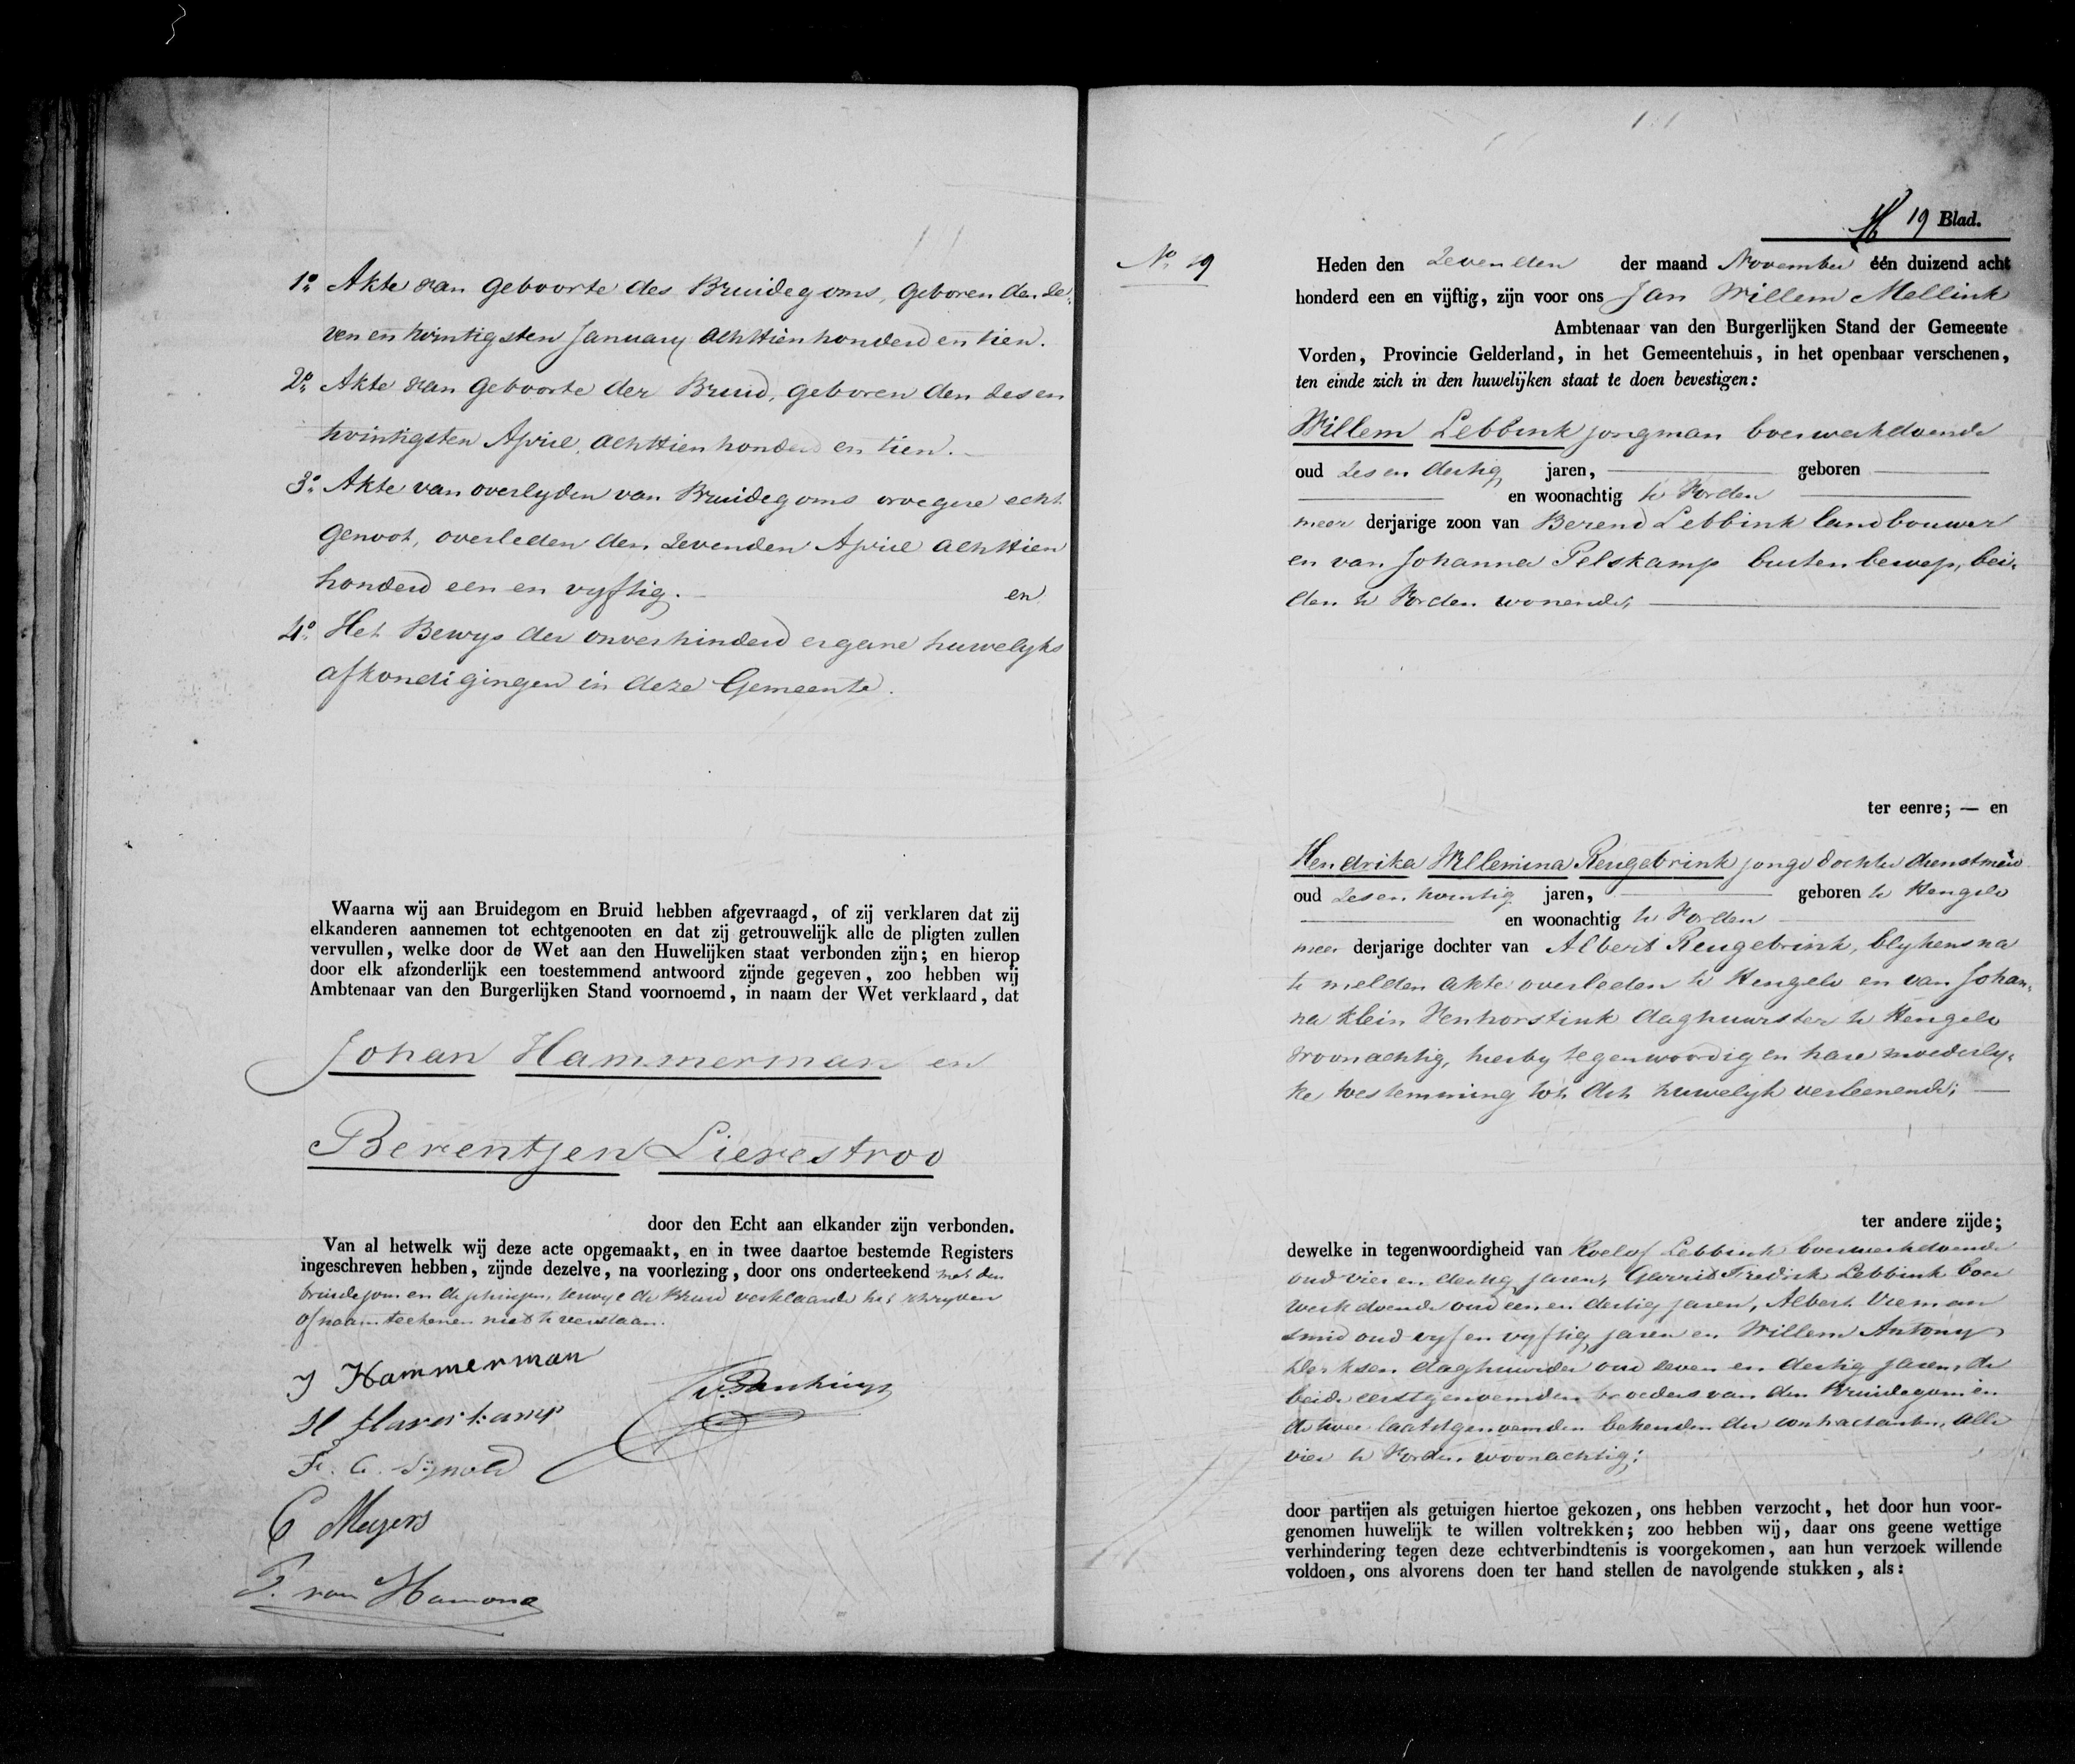 1º. Akte van geboorte des Bruidegoms, geboren den ze-
ven en twintigsten January achttien honderd en tien.
2º. Akte van geboorte der Bruid, geboren den zes en
twintigsten April, achttien honderd en tien.
3º. Akte van overlyden van Bruidegoms vroegere echt
genoot, overleden den zevenden April achttien
honderd een en vyftig. en
4º. Het Bewys der onverhinderd ergane huwelyks
afkondigingen in deze Gemeente.
Waarna wij aan Bruidegom en Bruid hebben afgevraagd, of zij verklaren dat zij
elkanderen aannemen tot echtgenooten en dat zij getrouwelijk alle de pligten zullen
vervullen, welke door de Wet aan den Huwelijken staat verbonden zijn; en hierop
door elk afzonderlijk een toestemmend antwoord zijnde gegeven, zoo hebben wij
Ambtenaar van den Burgerlijken Stand voornoemd, in naam der Wet verklaard, dat
Johan Hammerman en
Berentjen Lievestroo
door den Echt aan elkander zijn verbonden.
Van al hetwelk wij deze acte opgemaakt, en in twee daartoe bestemde Registers
ingeschreven hebben, zijnde dezelve, na voorlezing, door ons onderteekend met den
bruidegom en de getuigen, terwyl de Bruid verklaarde het schryven
of naamteekenen niet te verstaan.
J Hammerman
H Haverkamp
C Meyers
P. van Hamond
19 Blad.
Nº. 19
Heden den Zevenden der maand November één duizend acht
honderd een en vijftig, zijn voor ons Jan Willem Mellink
Ambtenaar van den Burgerlijken Stand der Gemeente
Vorden, Provincie Gelderland, in het Gemeentehuis, in het openbaar verschenen,
ten einde zich in den huwelijken staat te doen bevestigen:
Willem Lebbink jongman boerwerkdoende
oud zes en dertig jaren, geboren
en woonachtig te Vorden
meer derjarige zoon van Berend Lebbink landbouwer
en van Johanna Pelskamp buiten beroep, bei-
den te Vorden wonende,
ter eenre; — en
Hendrika Willemina Reugebrink jonge dochter dienstmeid
oud zes en twintig jaren, geboren te Hengelo
en woonachtig te Vorden
meer derjarige dochter van Albert Reugebrink, blykens na
te melden akte overleden te Hengelo en van Johan-
na Klein Venhorstink daghuurster te Hengelo
woonachtig, hierby tegenwoordig en hare moederly-
ke toestemming tot dit huwelyk verleenende;
ter andere zijde;
dewelke in tegenwoordigheid van Roelof Lebbink boerwerkdoende
oud vier en dertig jaren, Garrit Fredrik Lebbink boer
werkdoende oud een en dertig jaren, Albert Vreman
smid oud vyf en vyftig jaren en Willem Antony
Derksen daghuurder oud zeven en dertig jaren, de
beide eerstgenoemden broeders van den Bruidegom en
de twee laatstgenoemden bekenden der contractanten, alle
vier te Vorden woonachtig;
door partijen als getuigen hiertoe gekozen, ons hebben verzocht, het door hun voor-
genomen huwelijk te willen voltrekken; zoo hebben wij, daar ons geene wettige
verhindering tegen deze echtverbindtenis is voorgekomen, aan hun verzoek willende
voldoen, ons alvorens doen ter hand stellen de navolgende stukken, als: